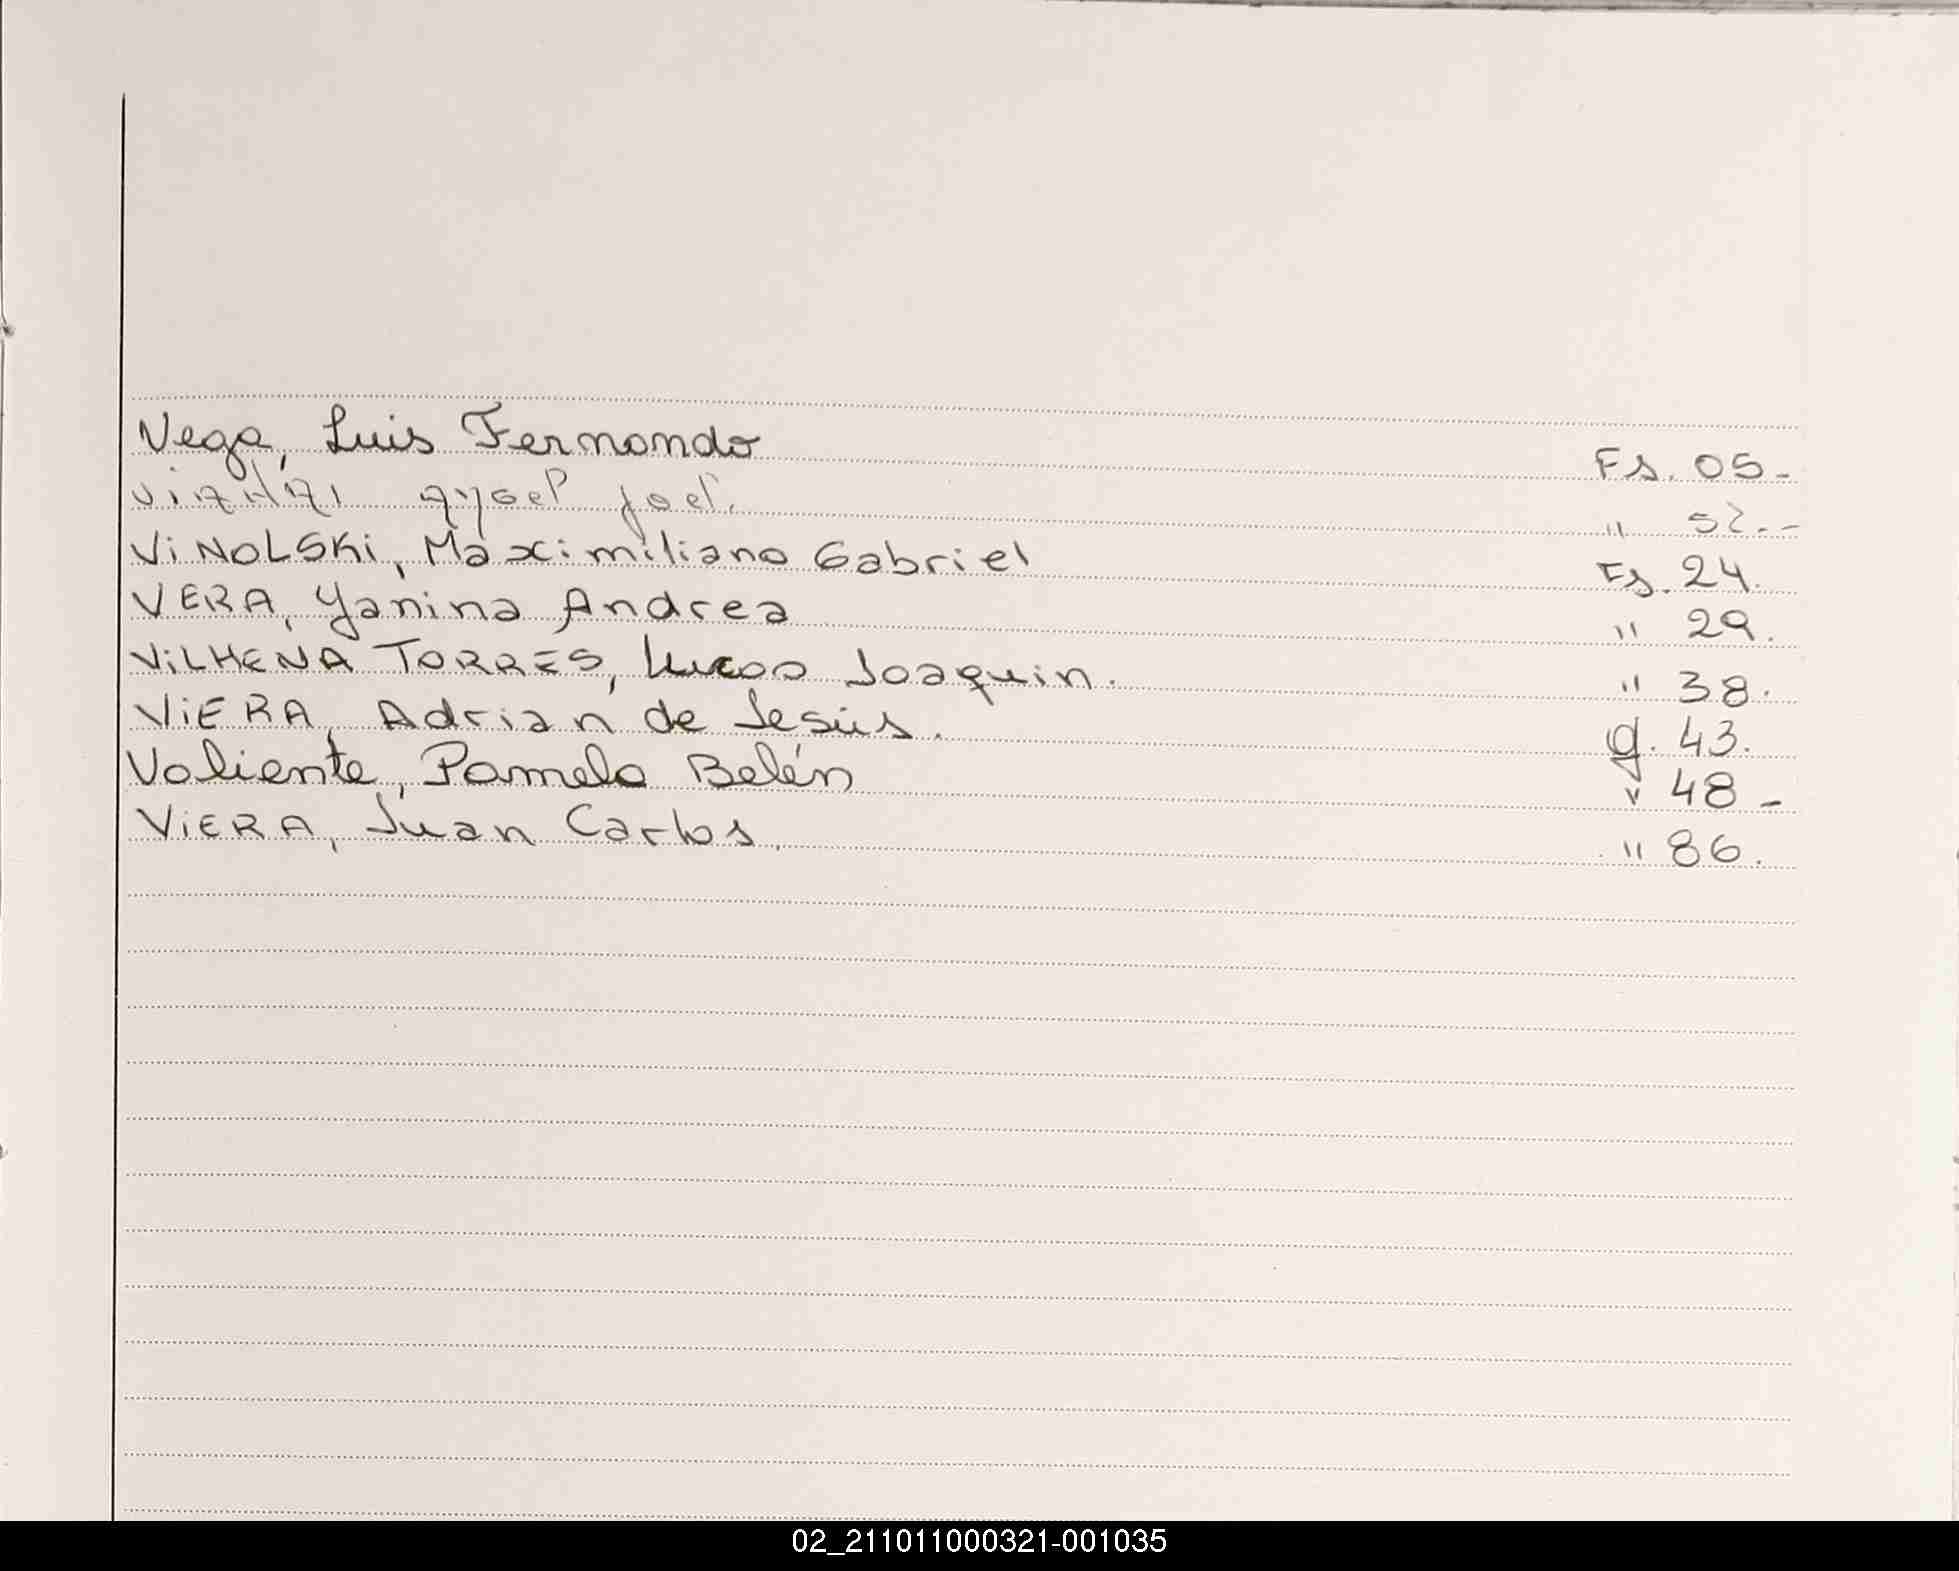 Vega, Luis Fernando Fs. 05.-
joel. " 52.-
ViNOLSKi, Maximiliano Gabriel Fs. 24.
VERA, Yanina Andrea " 29.
ViLHENA TORRES, Lucas Joaquin. " 38.
ViERA, Adrian de Jesús. 43.
Valiente, Pamela Belén 48-
ViERA, Juan Carlos. " 86.
02_211011000321-001035